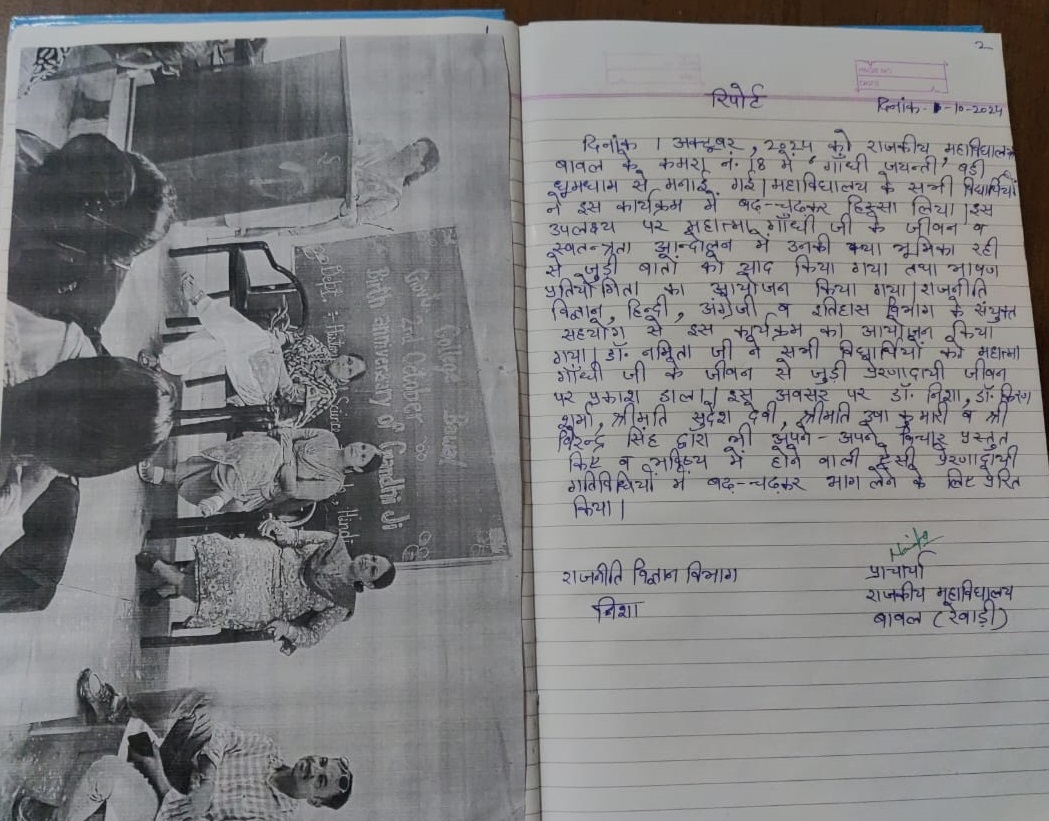 1
Govt. College Bawal
2nd October
Birth anniversary of Gandhi Ji
Hindi
2
रिपोर्ट
दिनांक- -10-2024
दिनांक 1 अक्टूबर, 2024 को राजकीय महाविद्यालय
बावल के कमरा नं. 18 में गाँधी जयन्ती बड़ी
धूमधाम से मनाई गई। महाविद्यालय के सभी विद्यार्थियों
ने इस कार्यक्रम में बढ़-चढ़कर हिस्सा लिया। इस
उपलक्ष्य पर महात्मा गाँधी जी के जीवन व
स्वतन्त्रता आन्दोलन में उनकी क्या भूमिका रही
से जुड़ी बातों को याद किया गया तथा भाषण
प्रतियोगिता का आयोजन किया गया। राजनीति
विज्ञान, हिन्दी, अंग्रेजी व इतिहास विभाग के संयुक्त
सहयोग से इस कार्यक्रम का आयोजन किया
गया। डॉ. नमिता जी ने सभी विद्यार्थियों को महात्मा
गाँधी जी के जीवन से जुड़ी प्रेरणादायी जीवन
पर प्रकाश डाला। इस अवसर पर डॉ. निशा, डॉ. किरण
शर्मा, श्रीमति सुदेश देवी, श्रीमति उषा कुमारी व श्री
विरेन्द्र सिंह द्वारा भी अपने-अपने विचार प्रस्तुत
किए व भविष्य में होने वाली ऐसी प्रेरणादायी
गतिविधियों में बढ़-चढ़कर भाग लेने के लिए प्रेरित
किया।
राजनीति विज्ञान विभाग
निशा
प्राचार्या
राजकीय महाविद्यालय
बावल (रेवाड़ी)